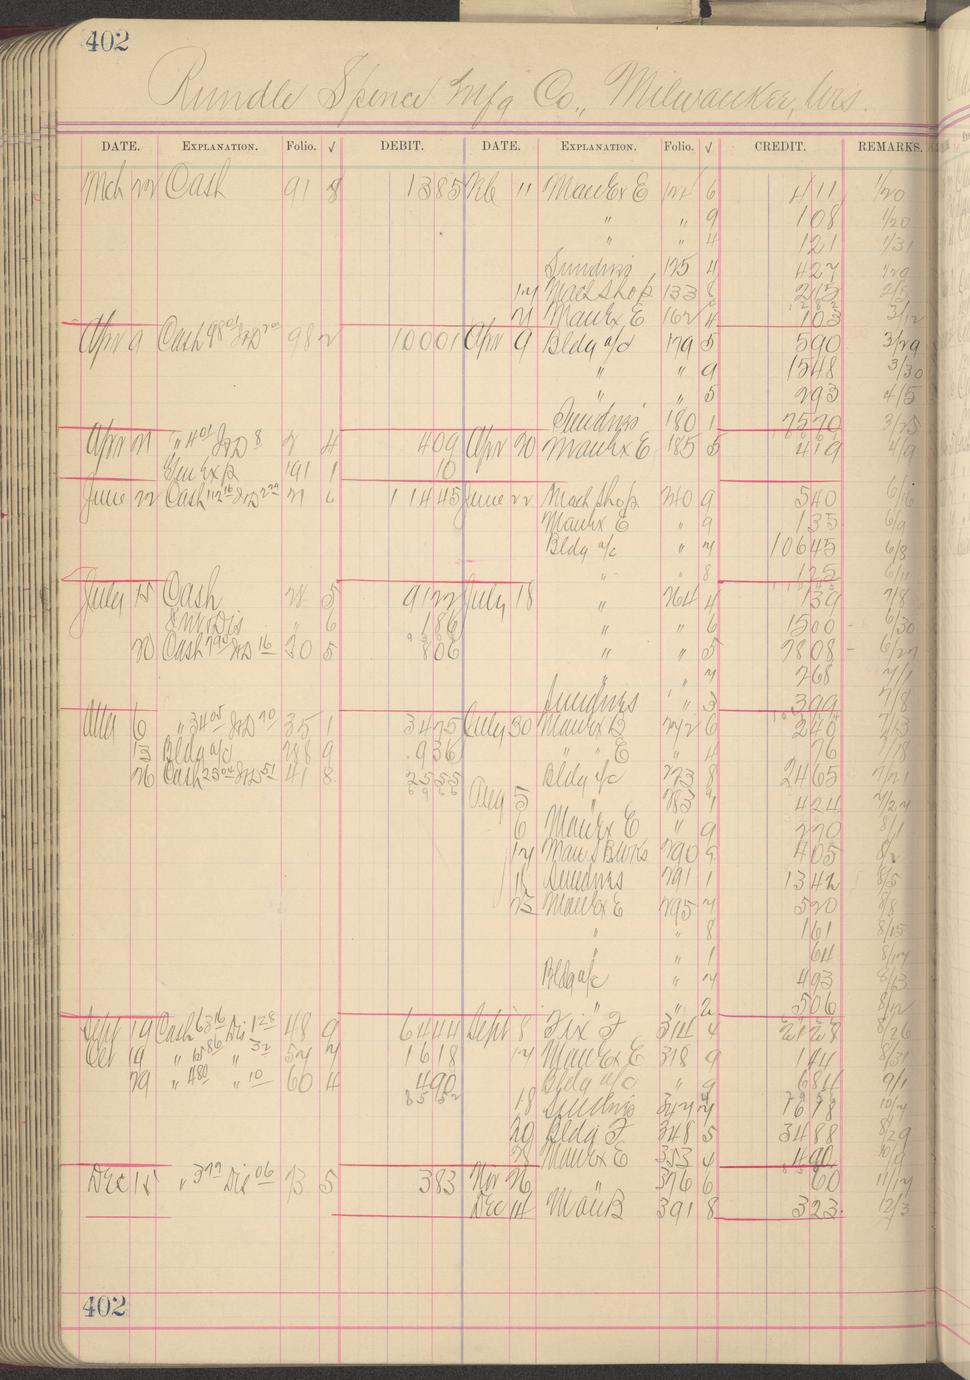 402
Rundle Spence Mfg Co., Milwaukee, Wis.
DATE. EXPLANATION. Folio. √ DEBIT. DATE. EXPLANATION. Folio. √ CREDIT. REMARKS.
Mch 22 Cash 91 8 1385 Feb 11 Man Ex E 6 411 1/20
" " 9 108 1/20
" " 4 121 1/31
Sundries 125 4 427 1/29
14 Mach Shop 133 8 215
21 Man Ex E 162 4 103 3/12
Apr 9 Cash 98 2 10001 Apr 9 Bldg a/c 179 5 590 3/29
" " 9 1548 3/30
" " 5 293 4/5
Sundries 180 1 7570 3/25
Apr 21 " 4 01 8 2 4 409 Apr 20 Man Ex E 185 5 419 4/9
Gen Exp 191 1 10
June 22 Cash 112 16 2 29 21 6 11445 June 22 Mach Shop 240 9 540 6/6
Man Ex E " 9 135 6/9
Bldg a/c " 7 10645 6/3
" " 8 125 6/11
July 15 Cash 28 5 9122 July 18 " 264 4 139 7/8
" 6 186 " " 6 1500 6/30
20 Cash 7 90 16 30 5 806 " " 5 7808 6/27
" 7 268 7/1
Sundries " 3 399 7/8
Aug 6 " 34 05 70 35 1 3475 July 30 Man Ex B 272 6 240 7/13
13 Bldg a/c 288 9 936 " " E " 4 76
26 Cash 25 04 51 41 8 2555 Bldg a/c 273 8 2465 7/21
Aug 5 " 283 9 424 7/27
6 Man Ex E " 9 270 8/1
14 290 405 8/2
Sundries 291 1 1342 8/5
25 Man Ex E 295 7 520 8/8
" " 8 161 8/15
" " 1 64 8/17
Bldg a/c " 7 493 8/13
" " 2 506 8/12
Sept 19 Cash 63 16 Dis 1 28 48 9 6444 Sept 8 Fix F 314 4 2128 8/26
Oct 19 " 15 86 " 32 54 7 1618 14 Man Ex E 318 9 144 8/31
29 " 4 80 " 10 60 4 490 Bldg a/c " 9 684 9/1
18 Sundries 344 7 7678 10/7
20 Bldg F 348 5 3488 8/29
28 Man Ex E 353 4 490
Dec 15 " 3 77 Dis 06 73 5 383 Nov 26 " 376 6 60 11/17
Dec 14 Man B 391 8 323 12/3
402